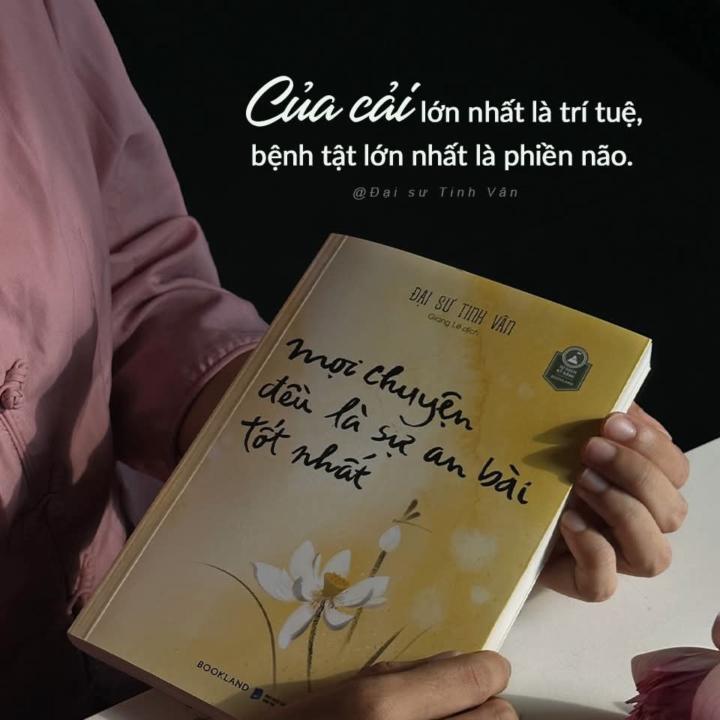 Của cải lớn nhất là trí tuệ,
bệnh tật lớn nhất là phiền não.
@Đại sư Tinh Vân
ĐẠI SƯ TINH VÂN
Giang Lê dịch
mọi chuyện
đều là sự an bài
tốt nhất
BOOKLAND